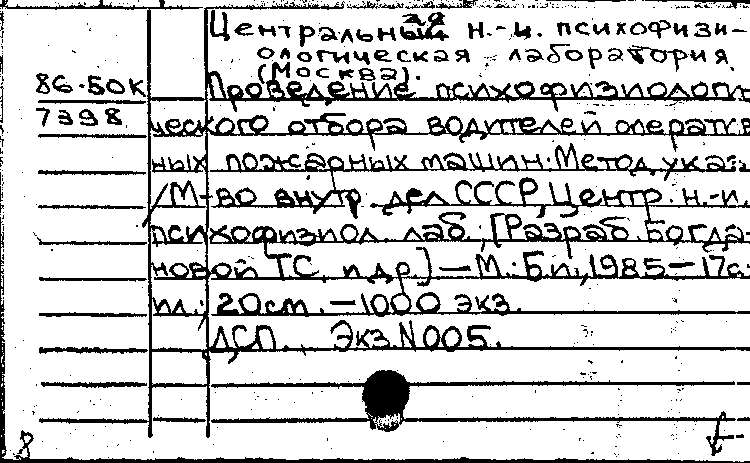 Центральная н.-и. психофизи-
ологическая лаборатория
(Москва).
86-50к
Проведение психофизиологи-
7398
ческого отбора водителей оператив-
ных пожарных машин: Метод. указ.
/М-во внутр. дел СССР, Центр. н.-и.
психофизиол. лаб.; [Разраб. Богда-
новой Т.С. и др.] — М.: Б.и., 1985 — 17с.:
ил.; 20см. — 1000 экз.
ДСП. Экз. N005.
8